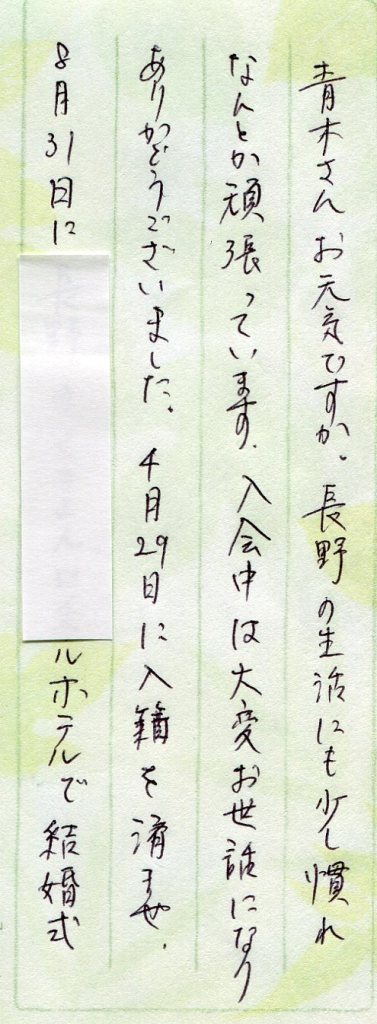 青木さんお元気ですか。長野の生活にも少し慣れ
なんとか頑張っています。入会中は大変お世話になり
ありがとうございました。4月29日に入籍を済ませ、
8月31日に ルホテルで結婚式